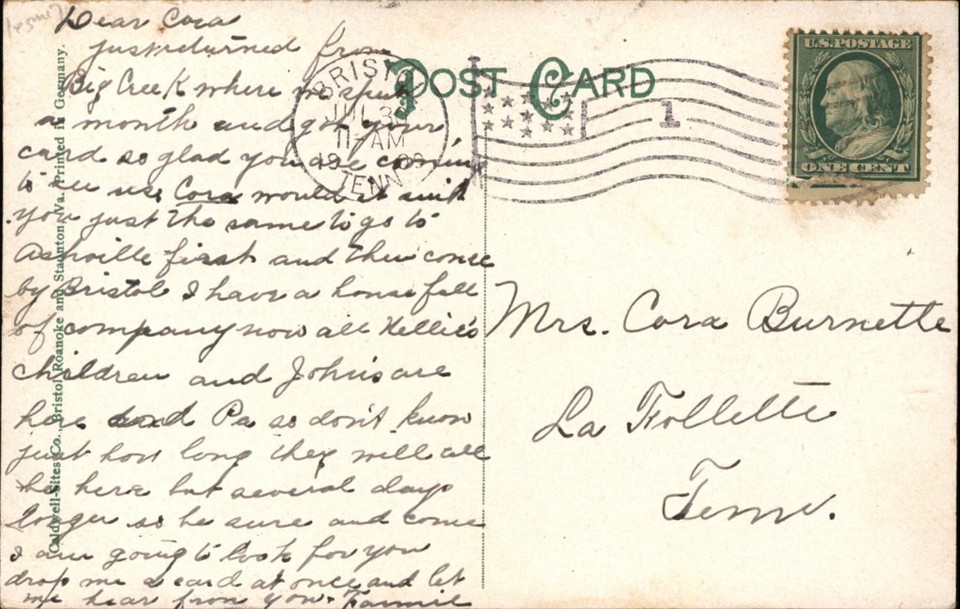 Dear Cora
just returned from
Big Creek where we spent
a month and got your
card so glad you are coming
to see us Cora would it suit
you just the same to go to
Ashville first and then come
by Bristol I have a house full
of company now all Nellie's
children and John's are
here and Pa so don't know
just how long they will all
be here but several days
longer so be sure and come
I am going to look for you
drop me a card at once and let
me hear from you.
POST CARD
BRISTOL
JUL 3
11 AM
1909
TENN
1
U.S. POSTAGE
ONE CENT
Mrs. Cora Burnette
La Follette
Tenn.
Caldwell-Sites Co., Bristol, Roanoke and Staunton, Va. Printed in Germany.